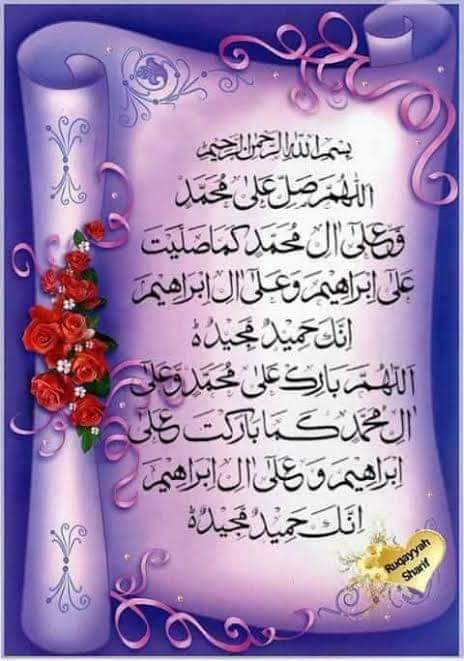 بسم الله الرحمن الرحيم
اللهم صل على محمد
وعلى ال محمد كما صليت
على ابراهيم وعلى ال ابراهيم
انك حميد مجيد ه
اللهم بارك على محمد وعلى
ال محمد كما باركت على
ابراهيم وعلى ال ابراهيم
انك حميد مجيد ه
Ruqayyah
Sharif